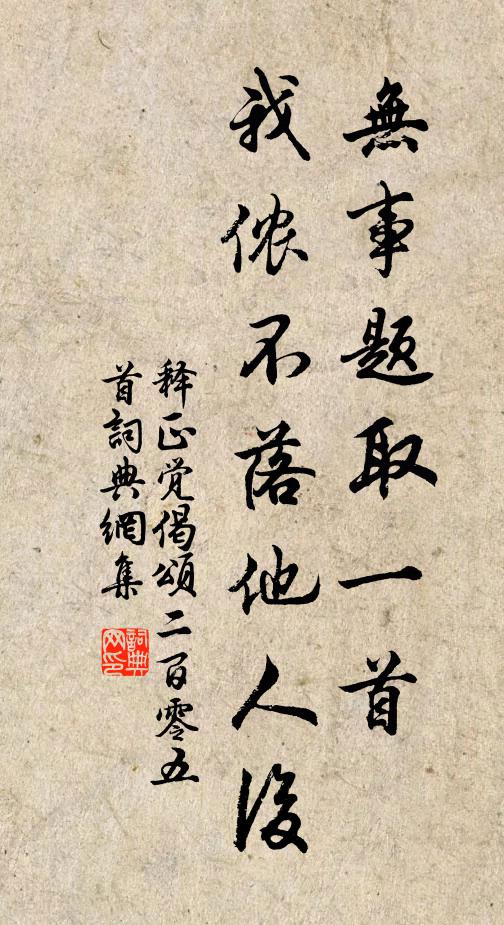 無事題取一首
我侬不落他人後
释正覺偈頌二百零五
首詞典網集
詞典网印